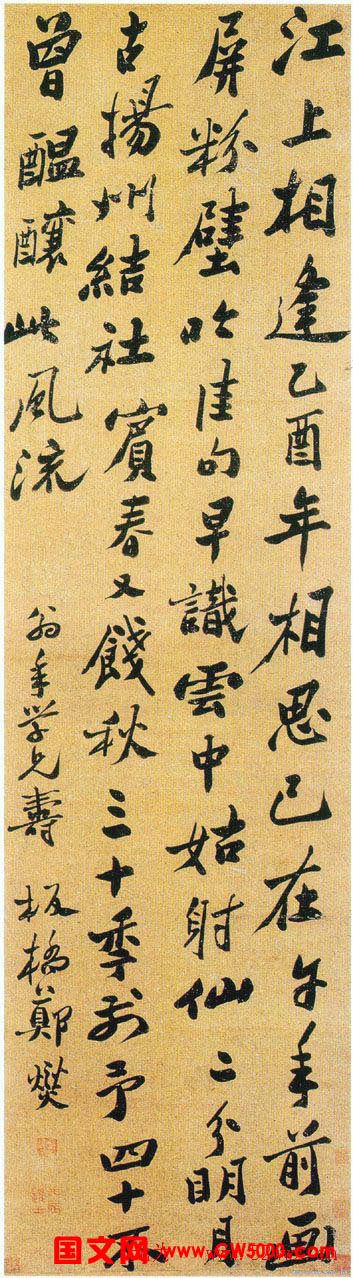 江上相逢乙酉年相思已在午年前画
屏粉壁吟佳句早識雲中姑射仙二分明月
古揚州結社賓春又餞秋三十季前予四十不
曾醞釀此風流
翁年学兄壽 板橋鄭燮
国文网 www.GW5000.com